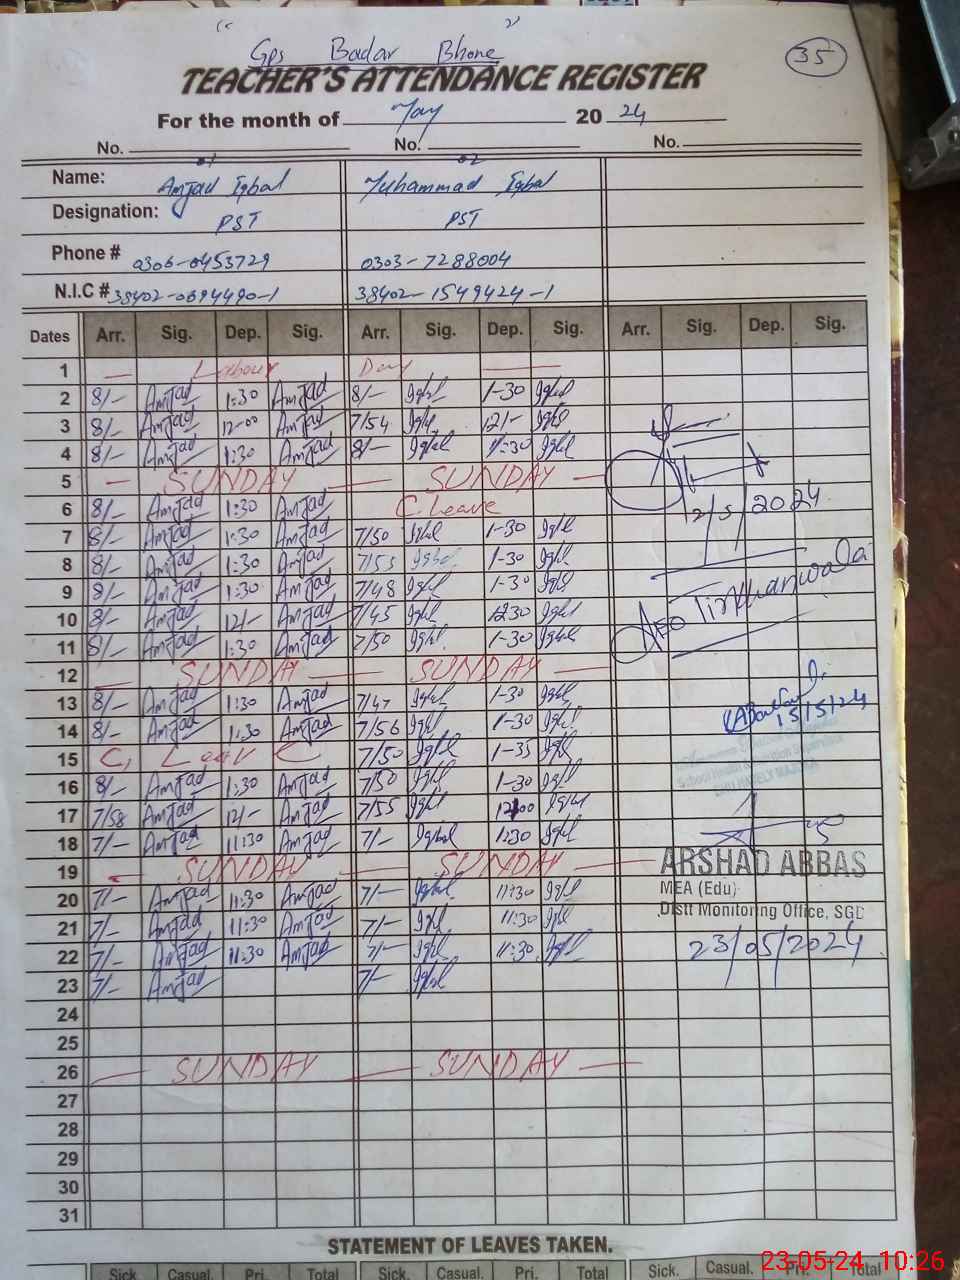 Gps Badar Bhone
35
TEACHER'S ATTENDANCE REGISTER
For the month of May 20 24
No. 01 No. 02 No.
Name: Amjad Iqbal Muhammad Iqbal
Designation: PST PST
Phone # 0306-0453729 0303-7288004
N.I.C # 38402-0694490-1 38402-1549424-1
Dates Arr. Sig. Dep. Sig. Arr. Sig. Dep. Sig. Arr. Sig. Dep. Sig.
1 — Labour Day —
2 8/- Amjad 1:30 Amjad 8/- Iqbal 1-30 Iqbal
3 8/- Amjad 12-00 Amjad 7/54 Iqbal 12/- Iqbal
4 8/- Amjad 1:30 Amjad 8/- Iqbal 1:30 Iqbal
5 — SUNDAY — SUNDAY —
6 8/- Amjad 1:30 Amjad C leave
7 8/- Amjad 1:30 Amjad 7/50 Iqbal 1-30 Iqbal
8 8/- Amjad 1:30 Amjad 7/55 Iqbal 1-30 Iqbal
9 8/- Amjad 1:30 Amjad 7/48 Iqbal 1-30 Iqbal
10 8/- Amjad 12/- Amjad 7/45 Iqbal 1230 Iqbal
11 8/- Amjad 1:30 Amjad 7/50 Iqbal 1-30 Iqbal
12 — SUNDAY — SUNDAY —
13 8/- Amjad 1:30 Amjad 7/47 Iqbal 1-30 Iqbal
14 8/- Amjad 1:30 Amjad 7/56 Iqbal 1-30 Iqbal
15 C, Leav C 7/50 Iqbal 1-35 Iqbal
16 8/- Amjad 1:30 Amjad 7/50 Iqbal 1-30 Iqbal
17 7/58 Amjad 12/- Amjad 7/55 Iqbal 12:00 Iqbal
18 7/- Amjad 11:30 Amjad 7/- Iqbal 11:30 Iqbal
19 — SUNDAY — SUNDAY —
20 7/- Amjad 11:30 Amjad 7/- Iqbal 11:30 Iqbal
21 7/- Amjad 11:30 Amjad 7/- Iqbal 11:30 Iqbal
22 7/- Amjad 11:30 Amjad 7/- Iqbal 11:30 Iqbal
23 7/- Amjad 7/- Iqbal
24
25
26 — SUNDAY — SUNDAY —
27
28
29
30
31
12/5/2024
AEO Tirkhanwala
15/5/24
School Health Nutrition Supervisor
ARSHAD ABBAS
MEA (Edu)
Distt Monitoring Office, SGD
23/05/2024
STATEMENT OF LEAVES TAKEN.
Sick Casual. Pri. Total Sick. Casual. Pri. Total Sick. Casual. Pri. Total
23-05-24 10:26